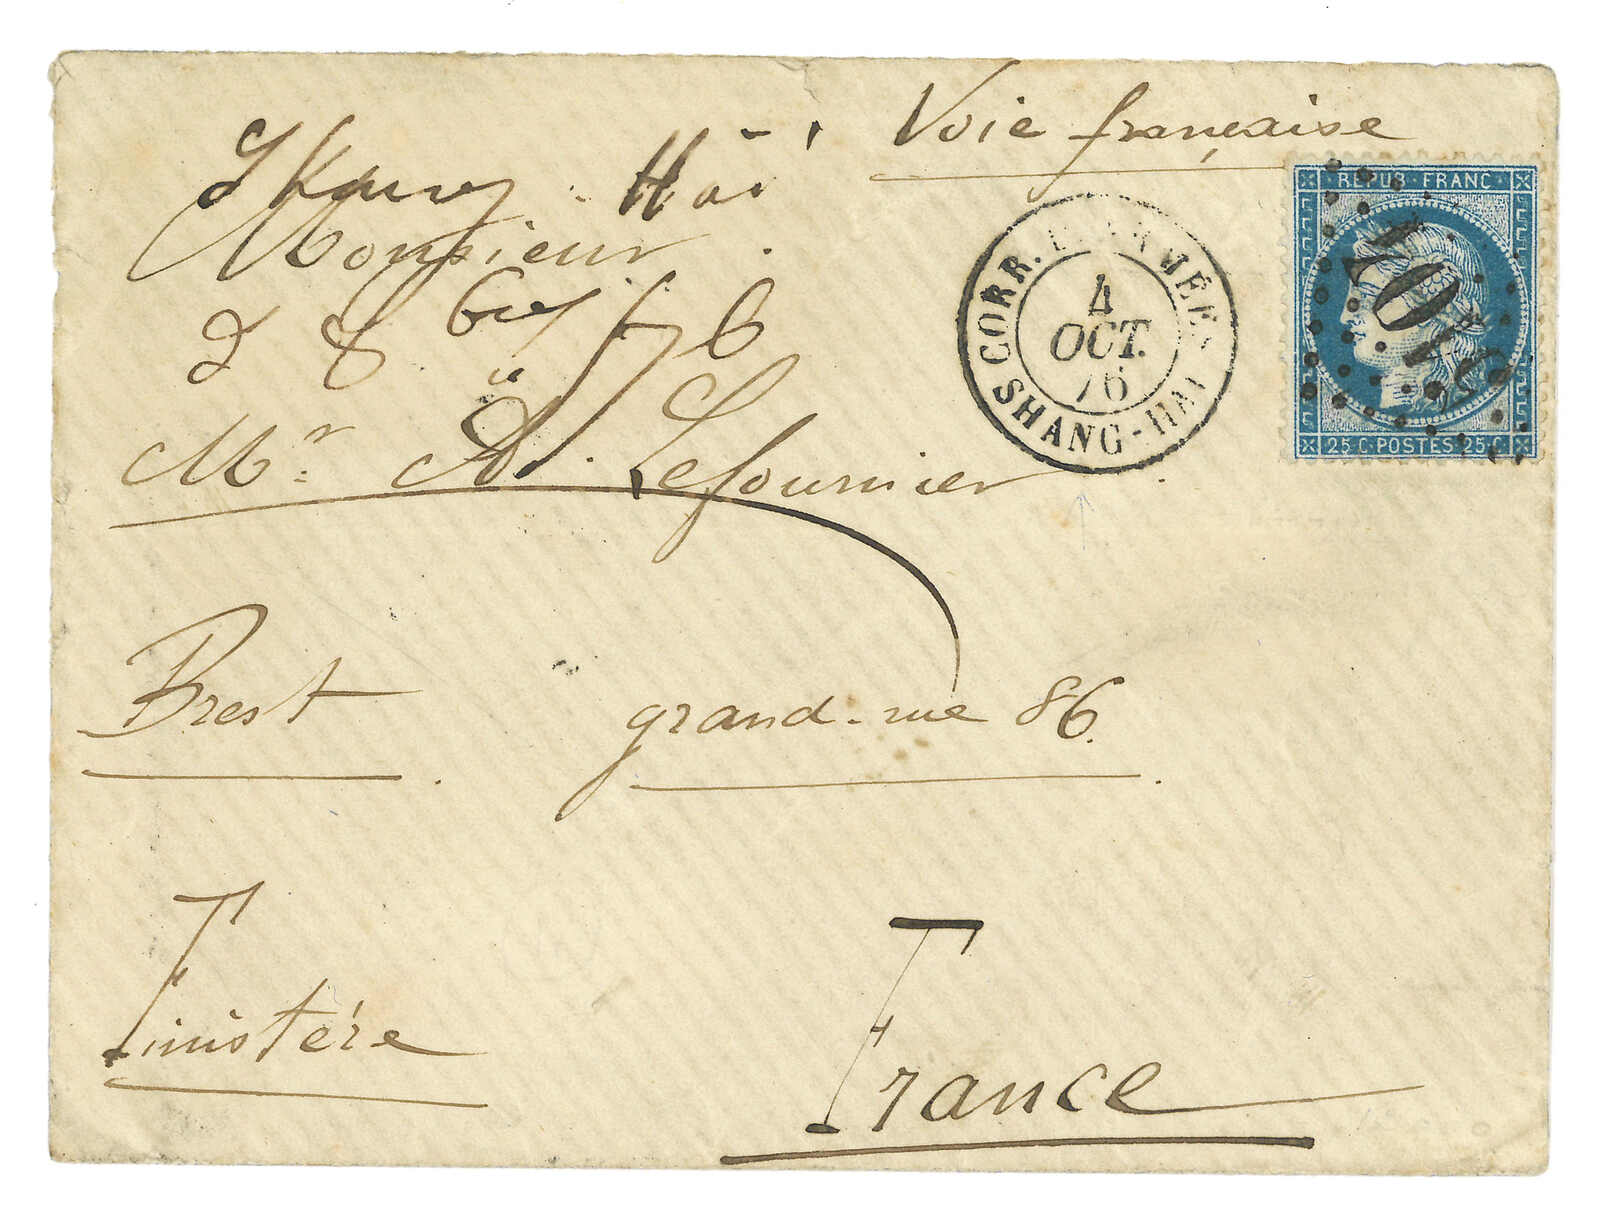 Voie française
Monsieur
Mr A. Lefournier
Brest grand-rue 86.
Finistère
France
CORR. D. ARMÉES
SHANG-HAI
4
OCT.
76
REPUB FRANC
5104
25 C POSTES 25 C